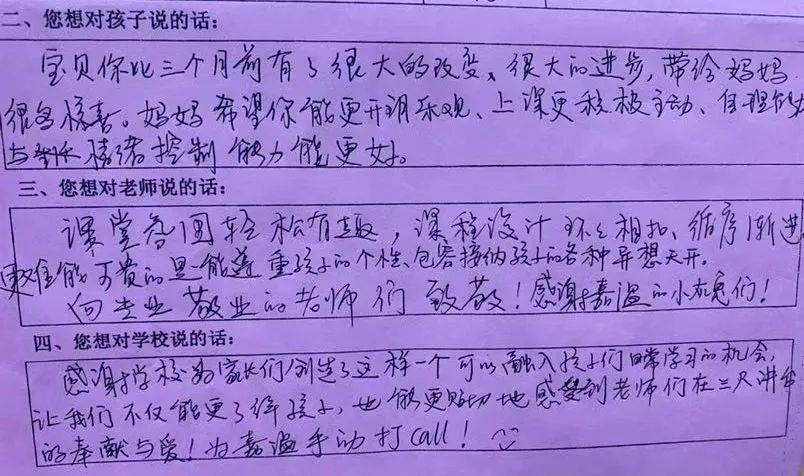 二、您想对孩子说的话：
宝贝你比三个月前有了很大的改变、很大的进步，带给妈妈
很多惊喜。妈妈希望你能更开朗乐观、上课更积极主动、自理能力
与情绪控制能力能更好。
三、您想对老师说的话：
课堂氛围轻松有趣，课程设计环环相扣、循序渐进
更难能可贵的是能尊重孩子的个性、包容接纳孩子的各种异想天开。
向专业敬业的老师们致敬！感谢嘉温的小太阳们！
四、您想对学校说的话：
感谢学校为家长们创造了这样一个可以融入孩子们日常学习的机会，
让我们不仅能更了解孩子，也能更贴切地感受到老师们在三尺讲台
的奉献与爱！为嘉温手动打call！